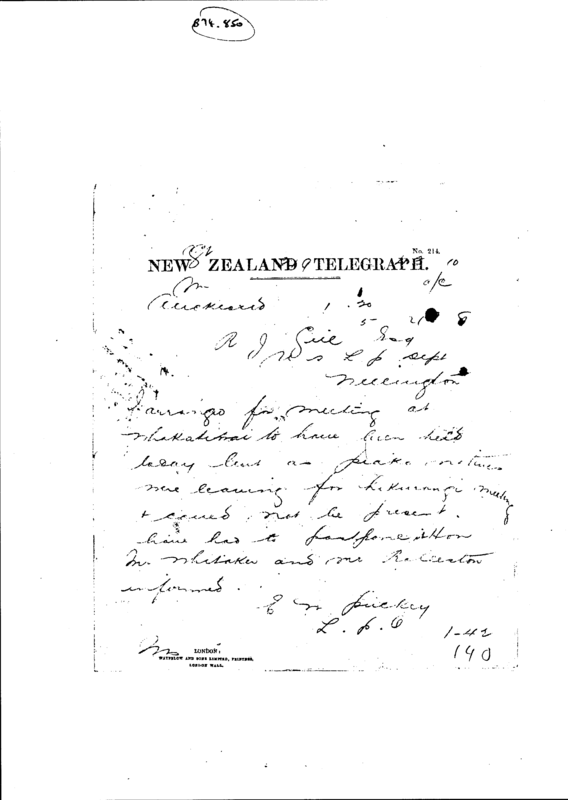 874.850
No. 214.
NEW ZEALAND TELEGRAPH.
10
a/c
Auckland 1.20
5 21 8
R J Gill Esq
L P Dept
Wellington
I arranged for meeting at
to have been held
today but as piako natives
were leaving for hikurangi meeting
& could not be present.
have had to postpone it Hon
Mr. Whitaker and Mr Rolleston
informed.
E M Puckey
L. P. O
1-42
190
LONDON:
WATERLOW AND SONS LIMITED, PRINTERS,
LONDON WALL.